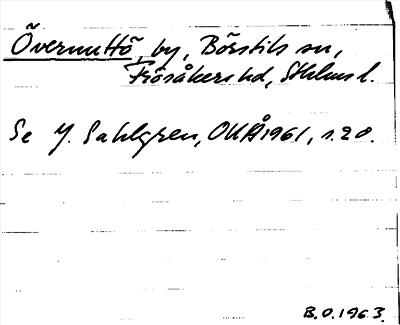 Övernuttö, by, Börstils sn,
Frösåkers hd, Sthlms l.
Se J. Sahlgren, OUÅ 1961, s. 20.
B.O. 1963.